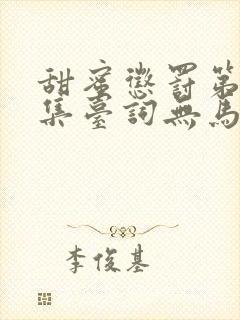 甜蜜懲罰第
集臺詞無馬
李俊基